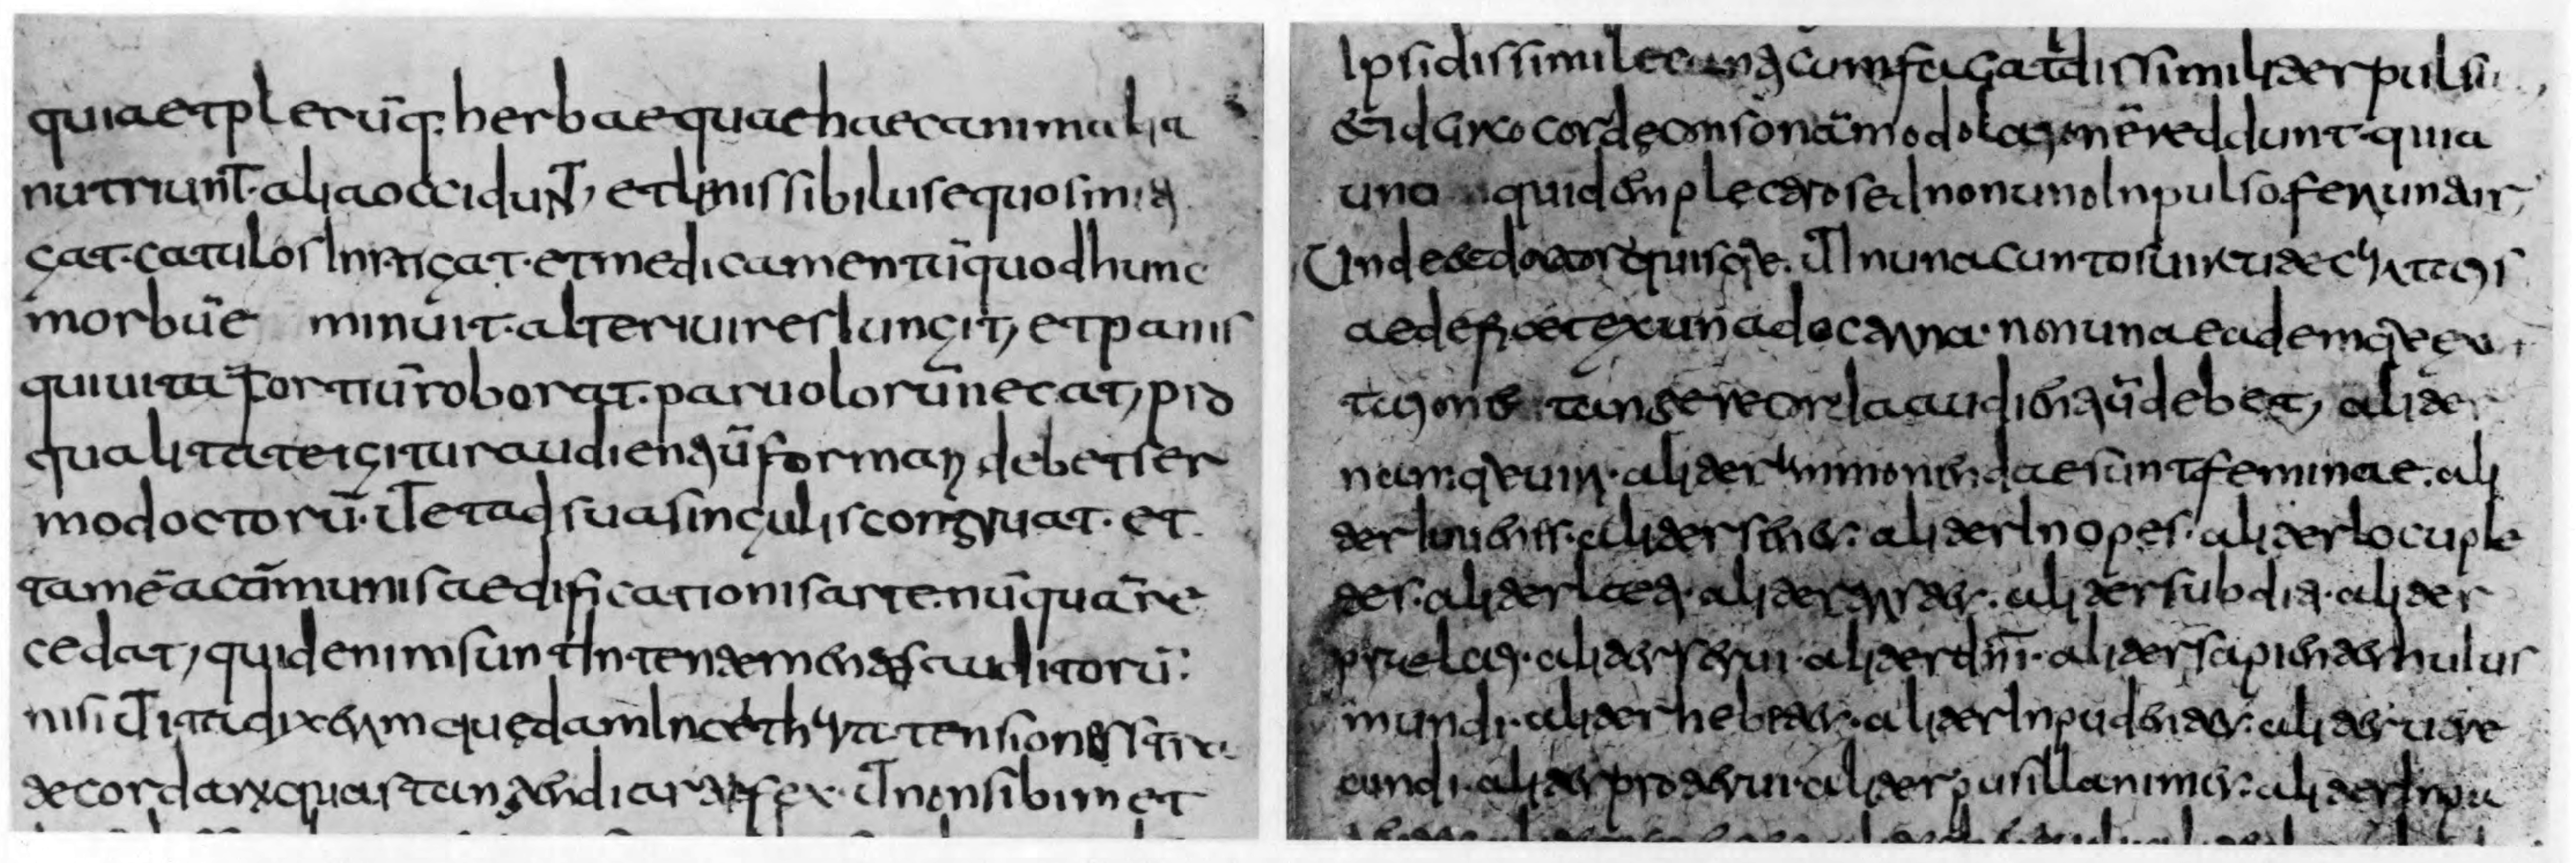 quia et plerūq: herbae quae haec animalia
nutriunt· alia occidunt, et lenis sibilus equos miti
gat· catulos Instigat· et medicamentū quod hunc
morbū e minuit· alteri uires Iungit, et panis
qui uitā fortiū roborat· paruolorū necat, pro
qualitate igitur audientiū formari debet ser
mo doctorū· ut et ad sua singulis congruat· et
tamē a cōmunis aedificationis arte nūquā re
cedat, quid enim sunt Intente mentes auditorū:
nisi ut ita dixerim quędam In cethera tensiones stra
te cordarū quas tangendi artifex· ut non sibimet
Ipsi dissimile canticum faciat dissimiliter pulsat,
Et idcirco corde consonā modolationē reddunt· quia
uno quidem plectro sed non uno Inpulso feriuntur,
Unde et doctor quisque· ut In una cunctos uirtute charitatis
aedeficet ex una doctrina· non una eademque exor
tationis tangere corda audientiū debet, aliter
namque uiri· aliter Ammonendae sunt feminae· ali
ter Iuuenis· aliter senes· aliter Inopes· aliter locuple
tes· aliter laeti· aliter tristes· aliter subditi· aliter
prelati· aliter serui· aliter dn̄i· aliter sapientes huius
mundi· aliter hebetes· aliter Inpudentes· aliter uere
cundi· aliter proterui· aliter pusillanimes· aliter Inpa